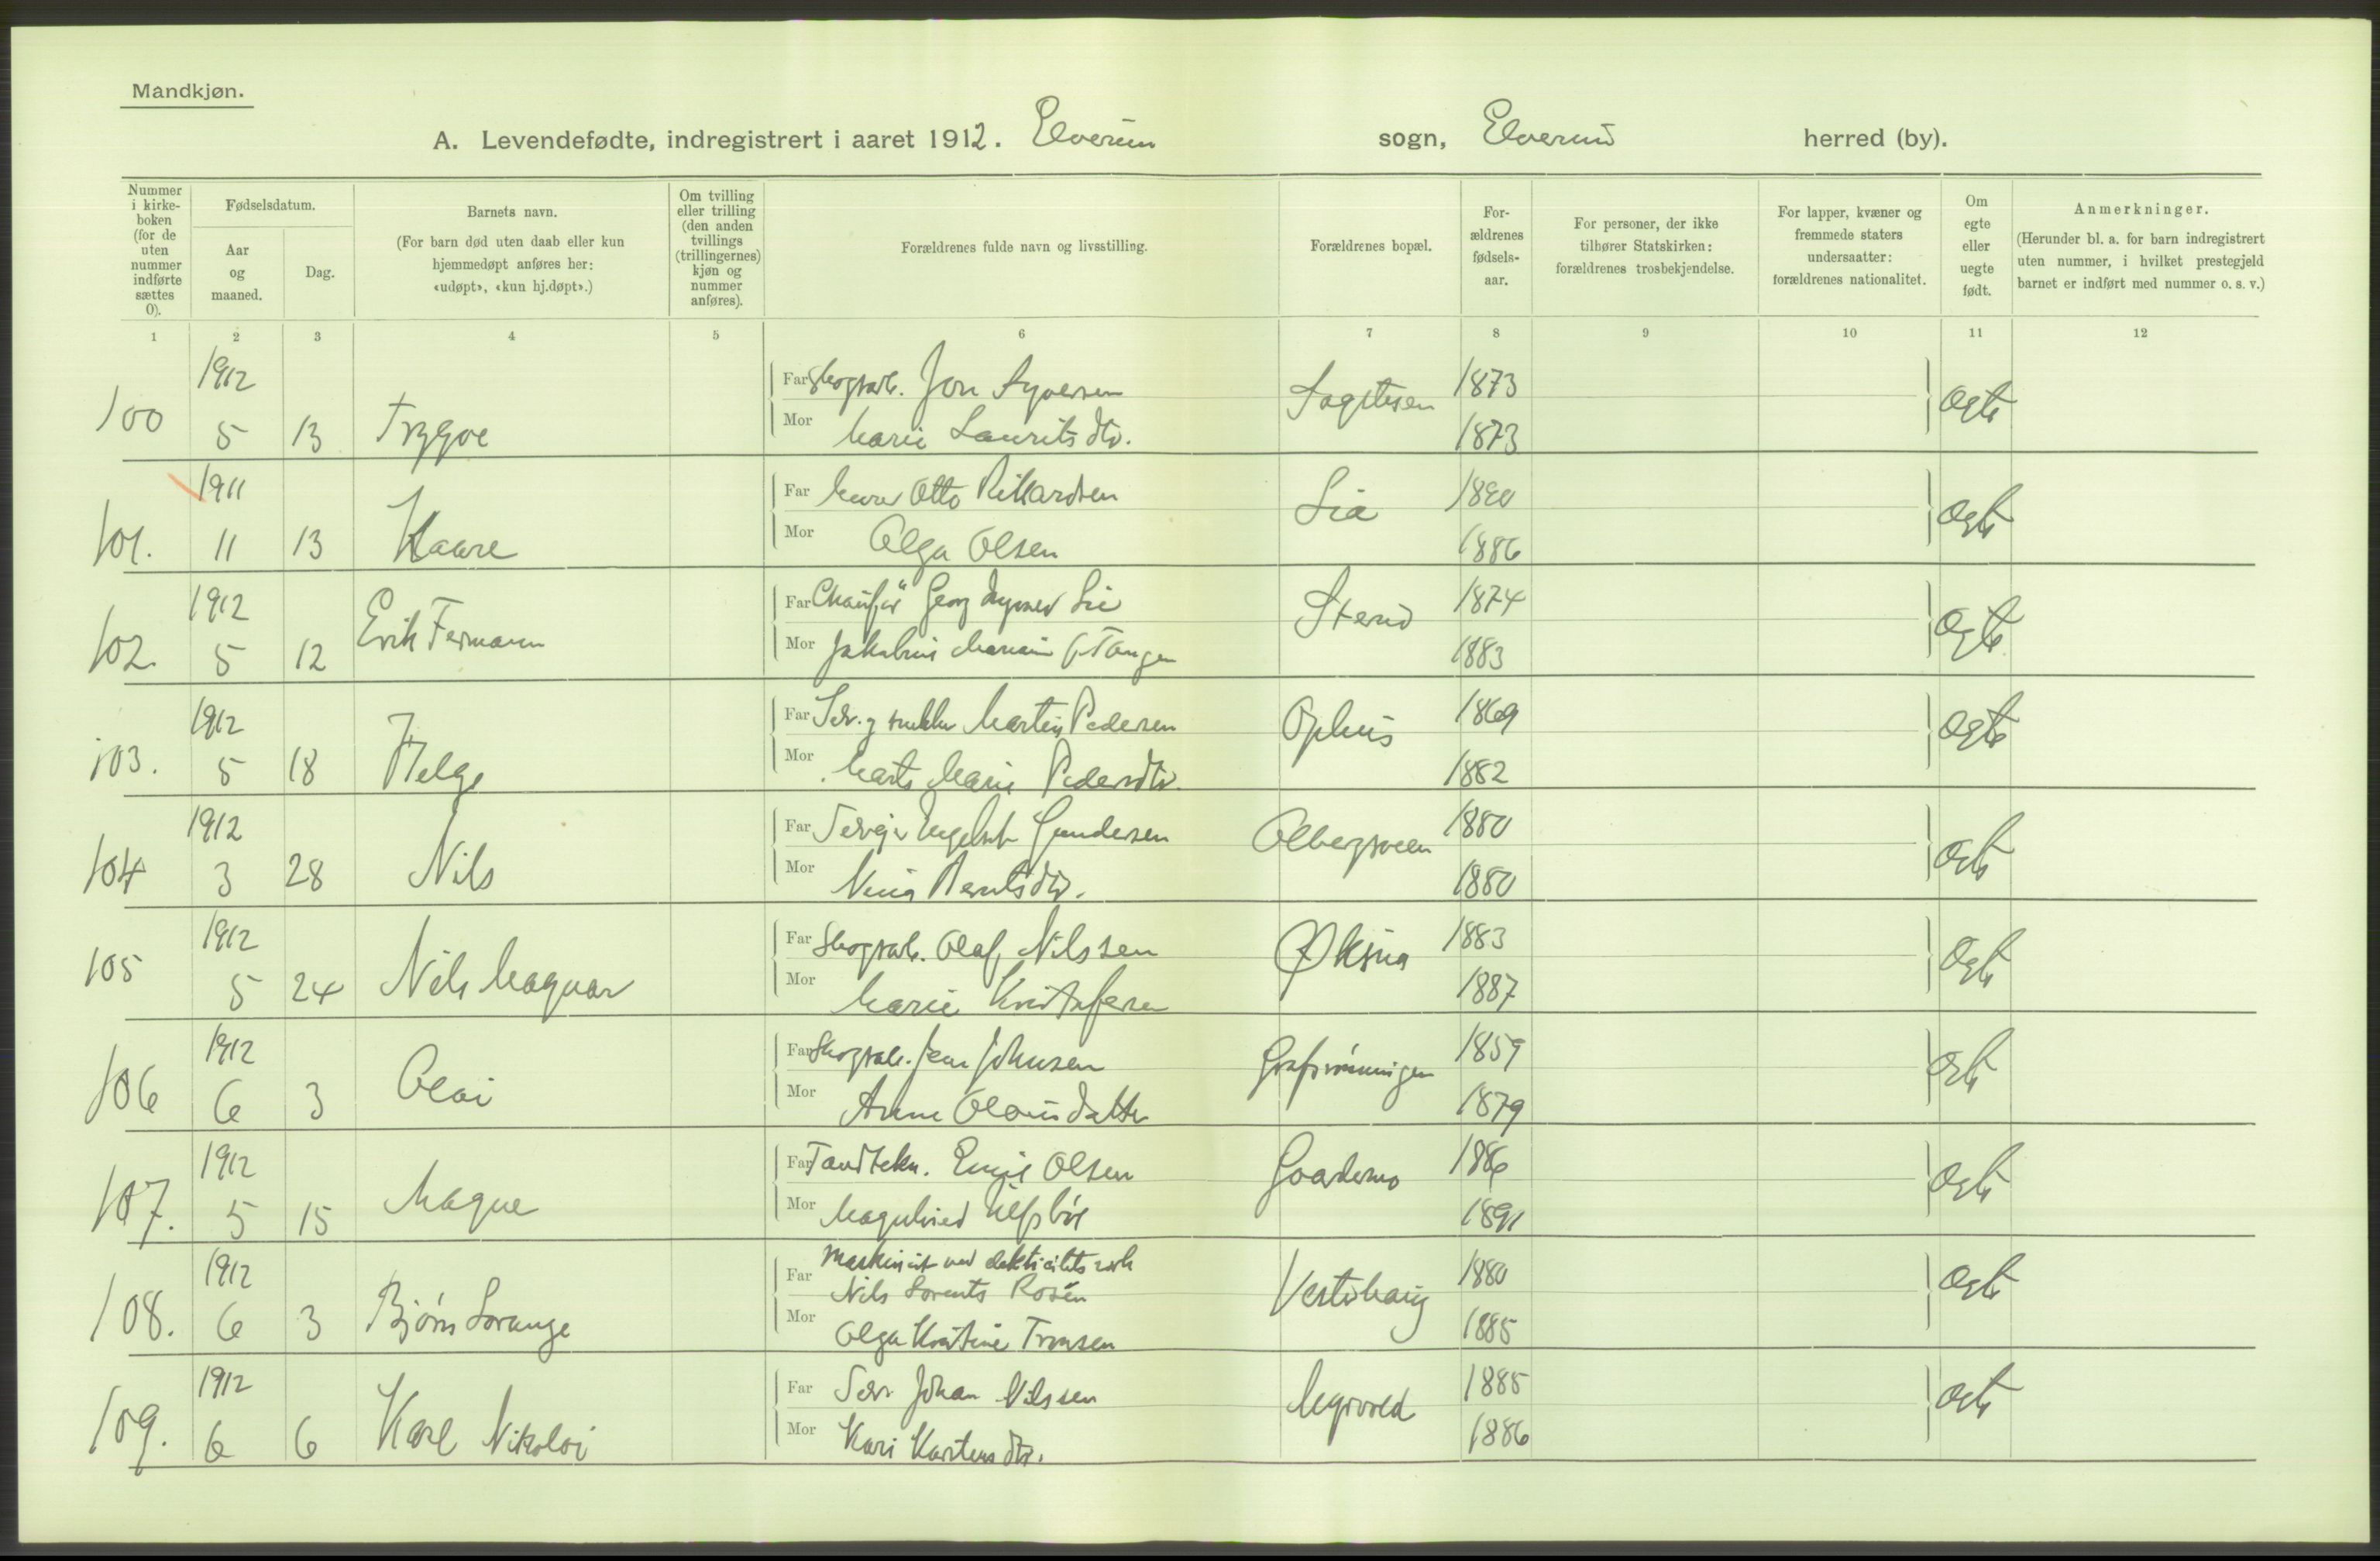 Mandkjøn.
A. Levendefødte, indregistrert i aaret 1912. Elverum sogn, Elverum herred (by).
Nummer i kirke-boken (for de uten nummer indførte sættes 0).
Fødselsdatum.
Aar og maaned.
Dag.
Barnets navn.
(For barn død uten daab eller kun hjemmedøpt anføres her: «udøpt», «kun hj.døpt».)
Om tvilling eller trilling (den anden tvillings (trillingernes) kjøn og nummer anføres).
Forældrenes fulde navn og livsstilling.
Forældrenes bopæl.
For-ældrenes fødsels-aar.
For personer, der ikke tilhører Statskirken: forældrenes trosbekjendelse.
For lapper, kvæner og fremmede staters undersaatter: forældrenes nationalitet.
Om egte eller uegte født.
Anmerkninger.
(Herunder bl. a. for barn indregistrert uten nummer, i hvilket prestegjeld barnet er indført med nummer o. s. v.)
1 2 3 4 5 6 7 8 9 10 11 12
1912 Far Skogsarb. Jon Syversen 1873
100 5 13 Trygve Mor Marie Lauritsdtr. 1873 egte
1911 Far Murer Otto Rikardsen Lia 1890
101. 11 13 Kaare Mor Olga Olsen 1886 egte
1912 Far Chaufør Georg Lie 1874
102. 5 12 Erik Fermann Mor 1883 egte
1912 Far Selv. og snekker Martin Pedersen Ophus 1869
103. 5 18 Helge Mor Marte Marie Pedersdtr. 1882 egte
1912 Far Selveier Engebret Gundersen 1880
104 3 28 Nils Mor Berntsdtr. 1880 egte
1912 Far Skogsarb. Olaf Nilssen Øksna 1883
105 5 24 Nils Magnar Mor Marie Kristofersen 1887 egte
1912 Far Skogsarb. Jens Johnsen 1859
106 6 3 Olai Mor Anne Olausdatter 1879 egte
1912 Far Tandtekn. Emil Olsen Gaardermo 1886
107. 5 15 Magne Mor 1891 egte
1912 Far Maskinist ved elektricitetsverk
Nils Lorents Rosén 1880
108. 6 3 Bjørn Lorange Mor Olga Kristine Tronsen Vestihaug 1885 egte
1912 Far Selv. Johan Nilssen 1885
109. 6 6 Karl Nikolai Mor Kari Karstensdtr. 1886 egte